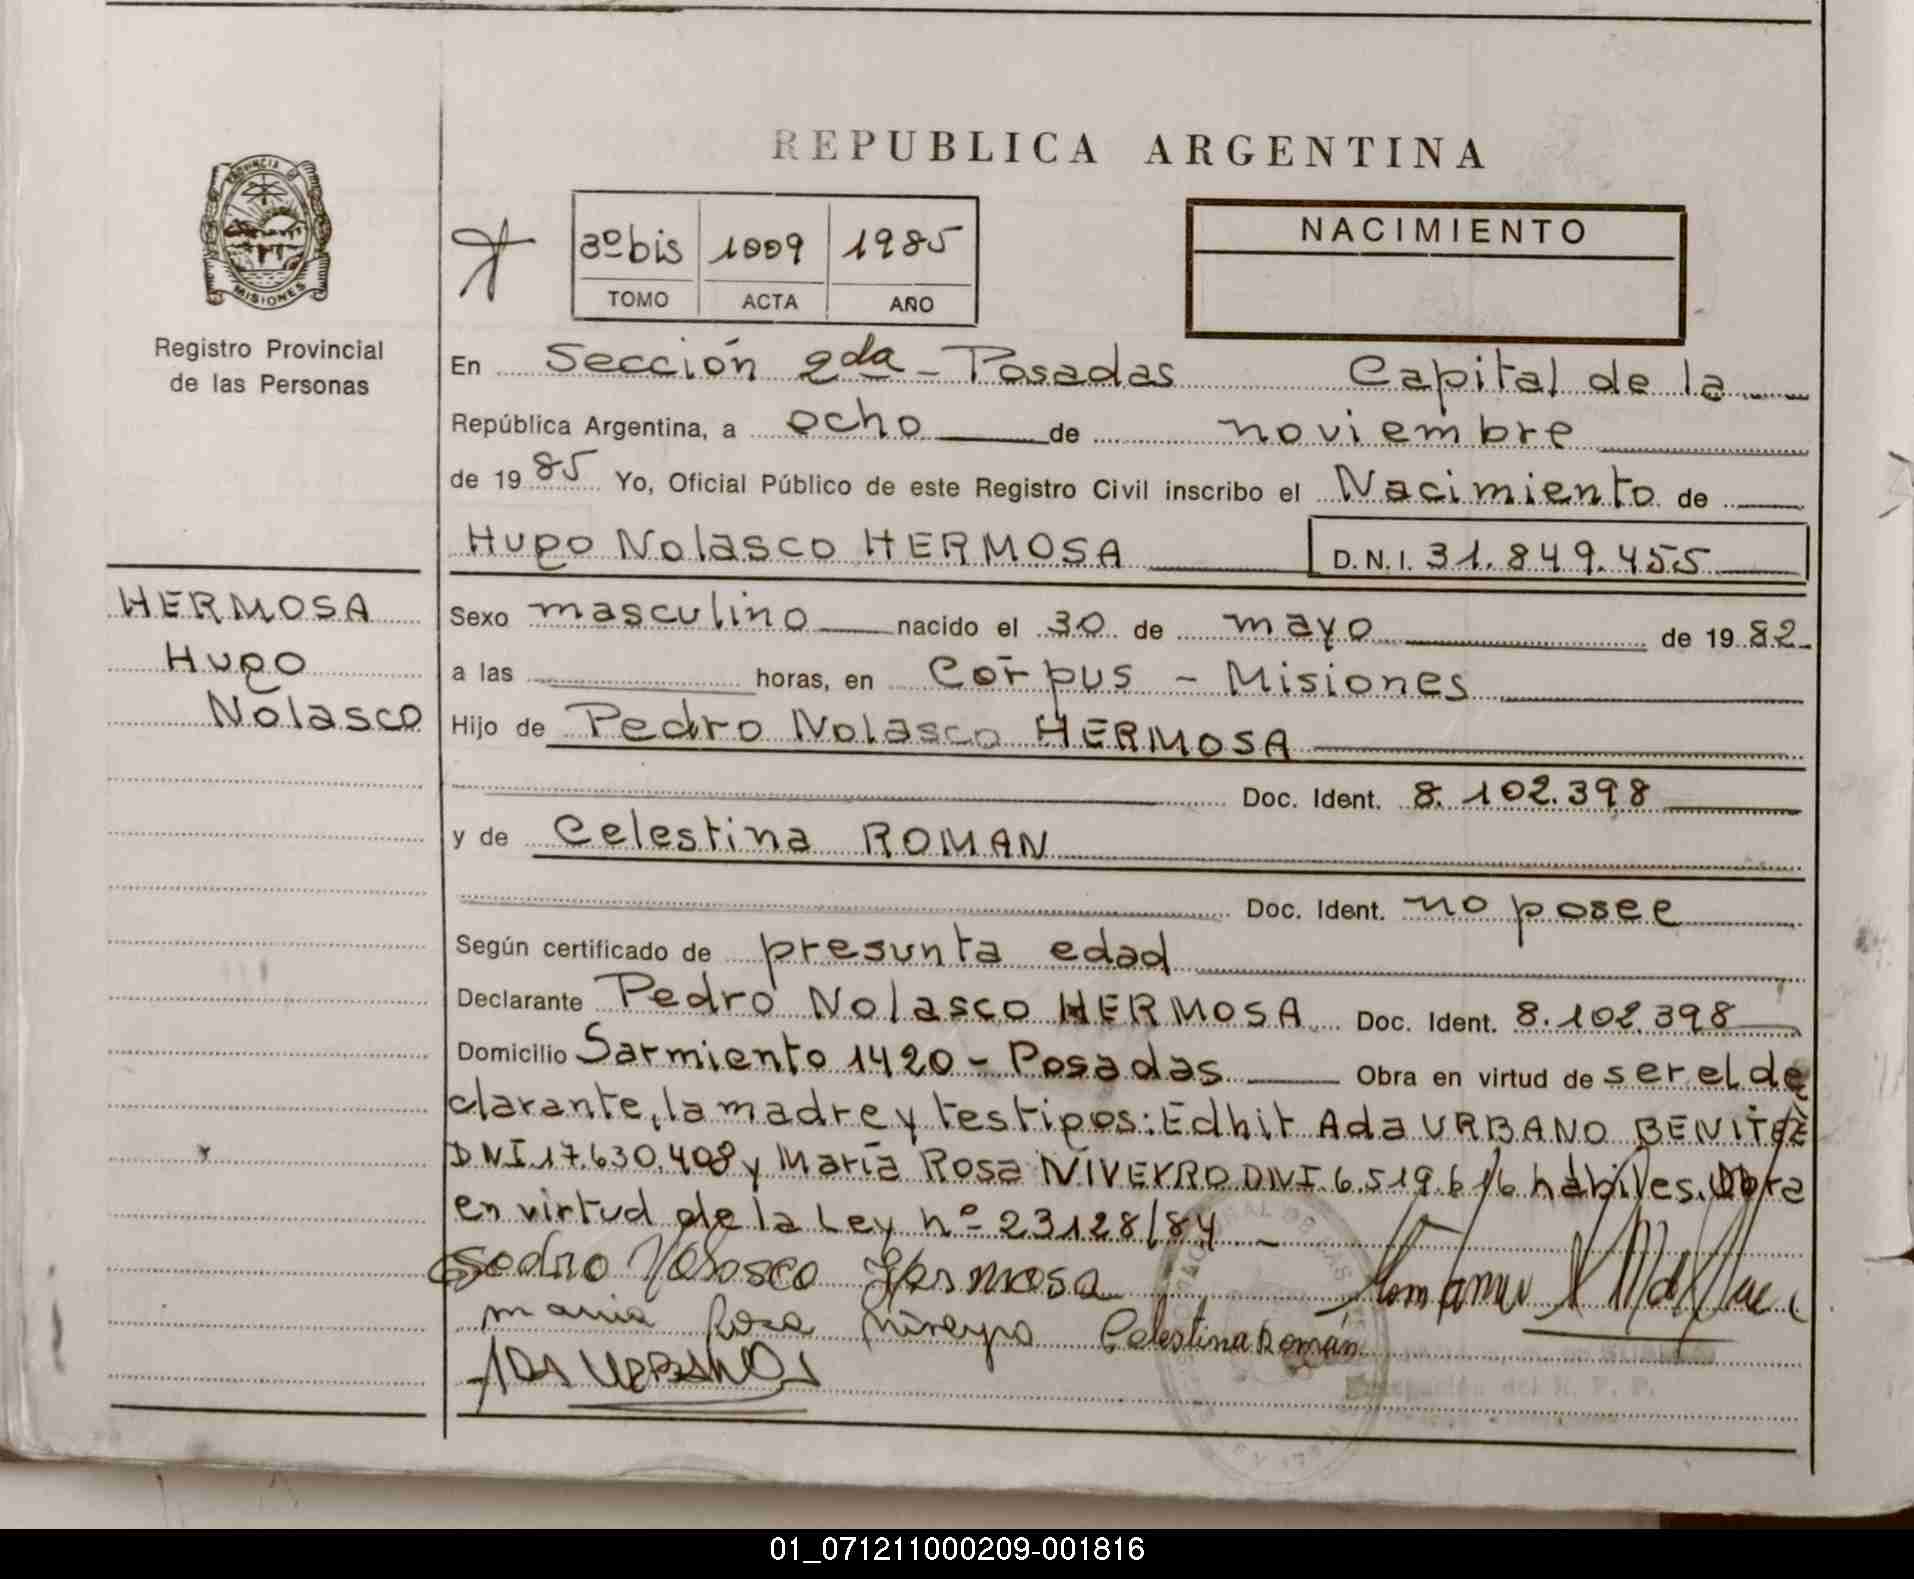 REPUBLICA ARGENTINA
PROVINCIA
MISIONES
Registro Provincial
de las Personas
3º bis 1009 1985
TOMO ACTA AÑO
NACIMIENTO
En Sección 2da - Posadas Capital de la
República Argentina, a ocho de noviembre
de 19 85 Yo, Oficial Público de este Registro Civil inscribo el Nacimiento de
Hugo Nolasco HERMOSA D.N.I. 31.849.455
HERMOSA
Hugo
Nolasco
Sexo masculino nacido el 30 de mayo de 19 82
a las horas, en Corpus - Misiones
Hijo de Pedro Nolasco HERMOSA
Doc. Ident. 8.102.398
y de Celestina ROMAN
Doc. Ident. no posee
Según certificado de presunta edad
Declarante Pedro Nolasco HERMOSA Doc. Ident. 8.102.398
Domicilio Sarmiento 1420 - Posadas Obra en virtud de ser el de
clarante, la madre y testigos: Edhit Ada URBANO BENITEZ
DNI 17.630.408 y María Rosa NIVEYRO DNI 6.519.616 hábiles. Obra
en virtud de la Ley nº 23128/84 -
Pedro Nolasco Hermosa
maria Rosa Niveyro Celestina Román
ADA URBANO
Delegación del R. P. P.
01_071211000209-001816